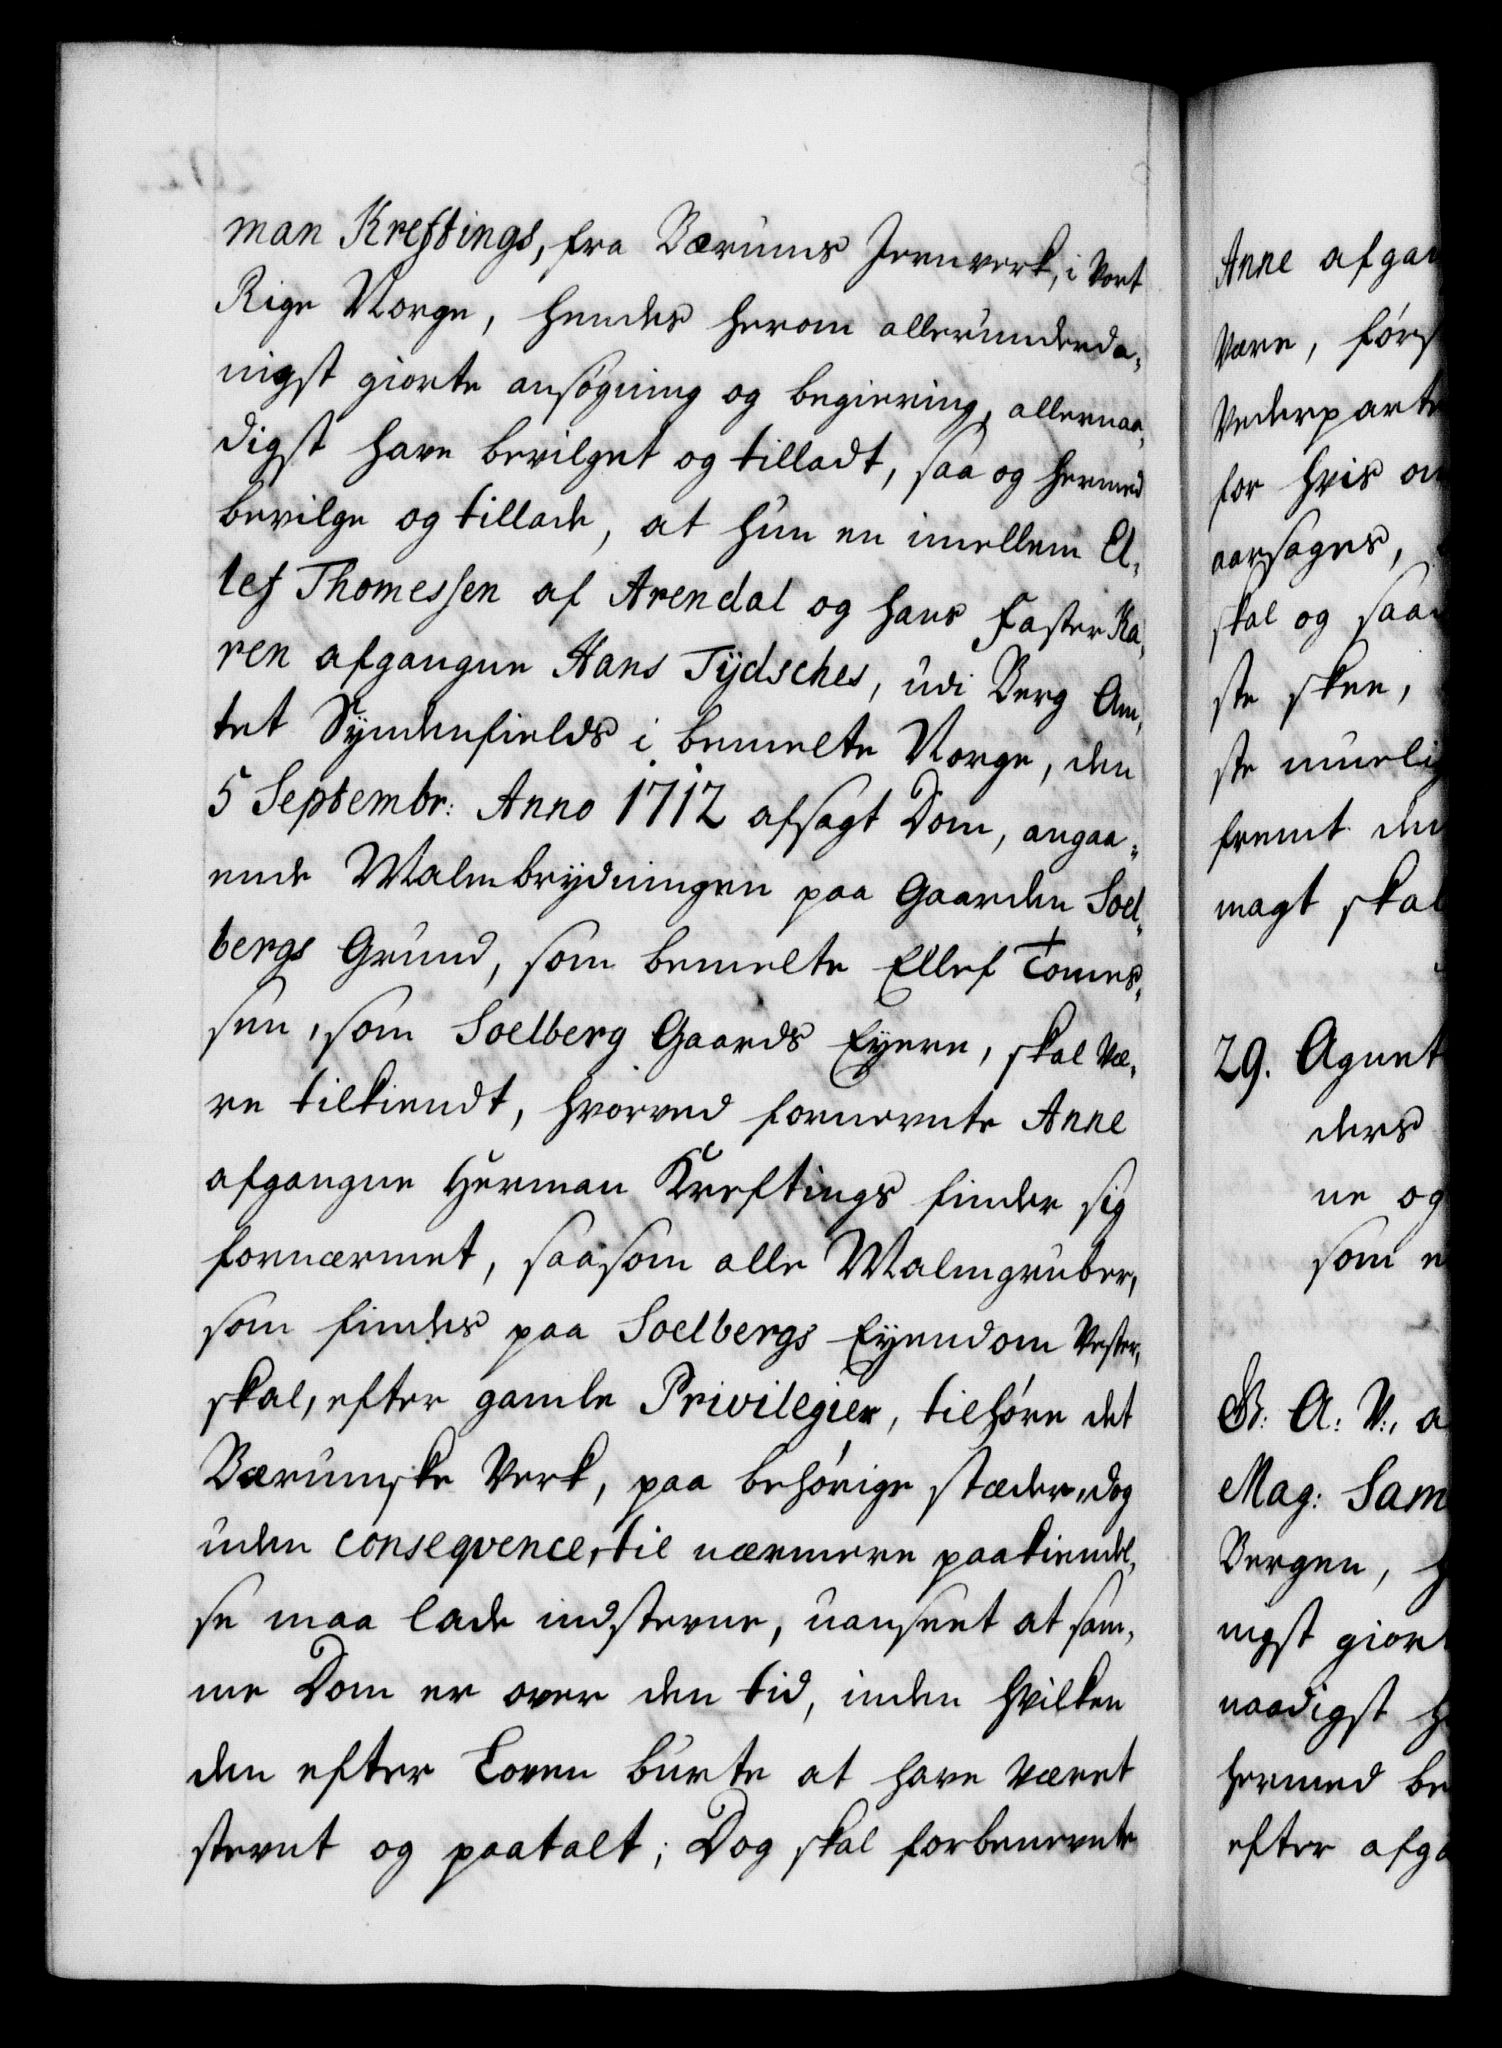 man Kreftings, fra Bærums Jernverk, i Vort
Rige Norge, hendes herom allerunderda-
nigst giorte ansøgning og begiering, allernaa-
digst have bevilget og tilladt, saa og hermed
bevilge og tillade, at hun en imellem El-
lef Thomessen af Arendal og hans Faster Ka-
ren afgangne Hans Tÿdsches, udi Berg Am-
tet Sÿndenfields i bemelte Norge, den
5 Septembr: Anno 1712 afsagt Dom, angaa-
ende Malmbrÿdningen paa Gaarden Soel-
bergs Grund, som bemelte Ellef Tomes-
sen, som Soelberg Gaards Eÿere, skal Væ-
re tilkiendt, hvorved fornevnte Anne
afgangne Herman Kreftings finder sig
fornærmet, saasom alle Malmgruber,
som findes paa Soelbergs Eÿendom Vester,
skal, efter gamle Privilegier, tilhøre det
Bærumske Verk, paa behørige stæder, dog
uden conseqvence, til nærmere paakiendel-
se maa lade indstevne, uanseet at sam-
me Dom er over den tid, inden hvilken
den efter Loven burte at have været
stevnt og paatalt; Dog skal forbenevnte
Anne afgan
Være, førs
Vederparte
for hvis
aarsages,
skal og saa
ste skee,
ste muelig
fremt den
magt skal
29. Agnet
ders
ne og
som
G: A: V:, a
Mag: Sam
Bergen, h
nigst giort
naadigst h
hermed be
efter afga